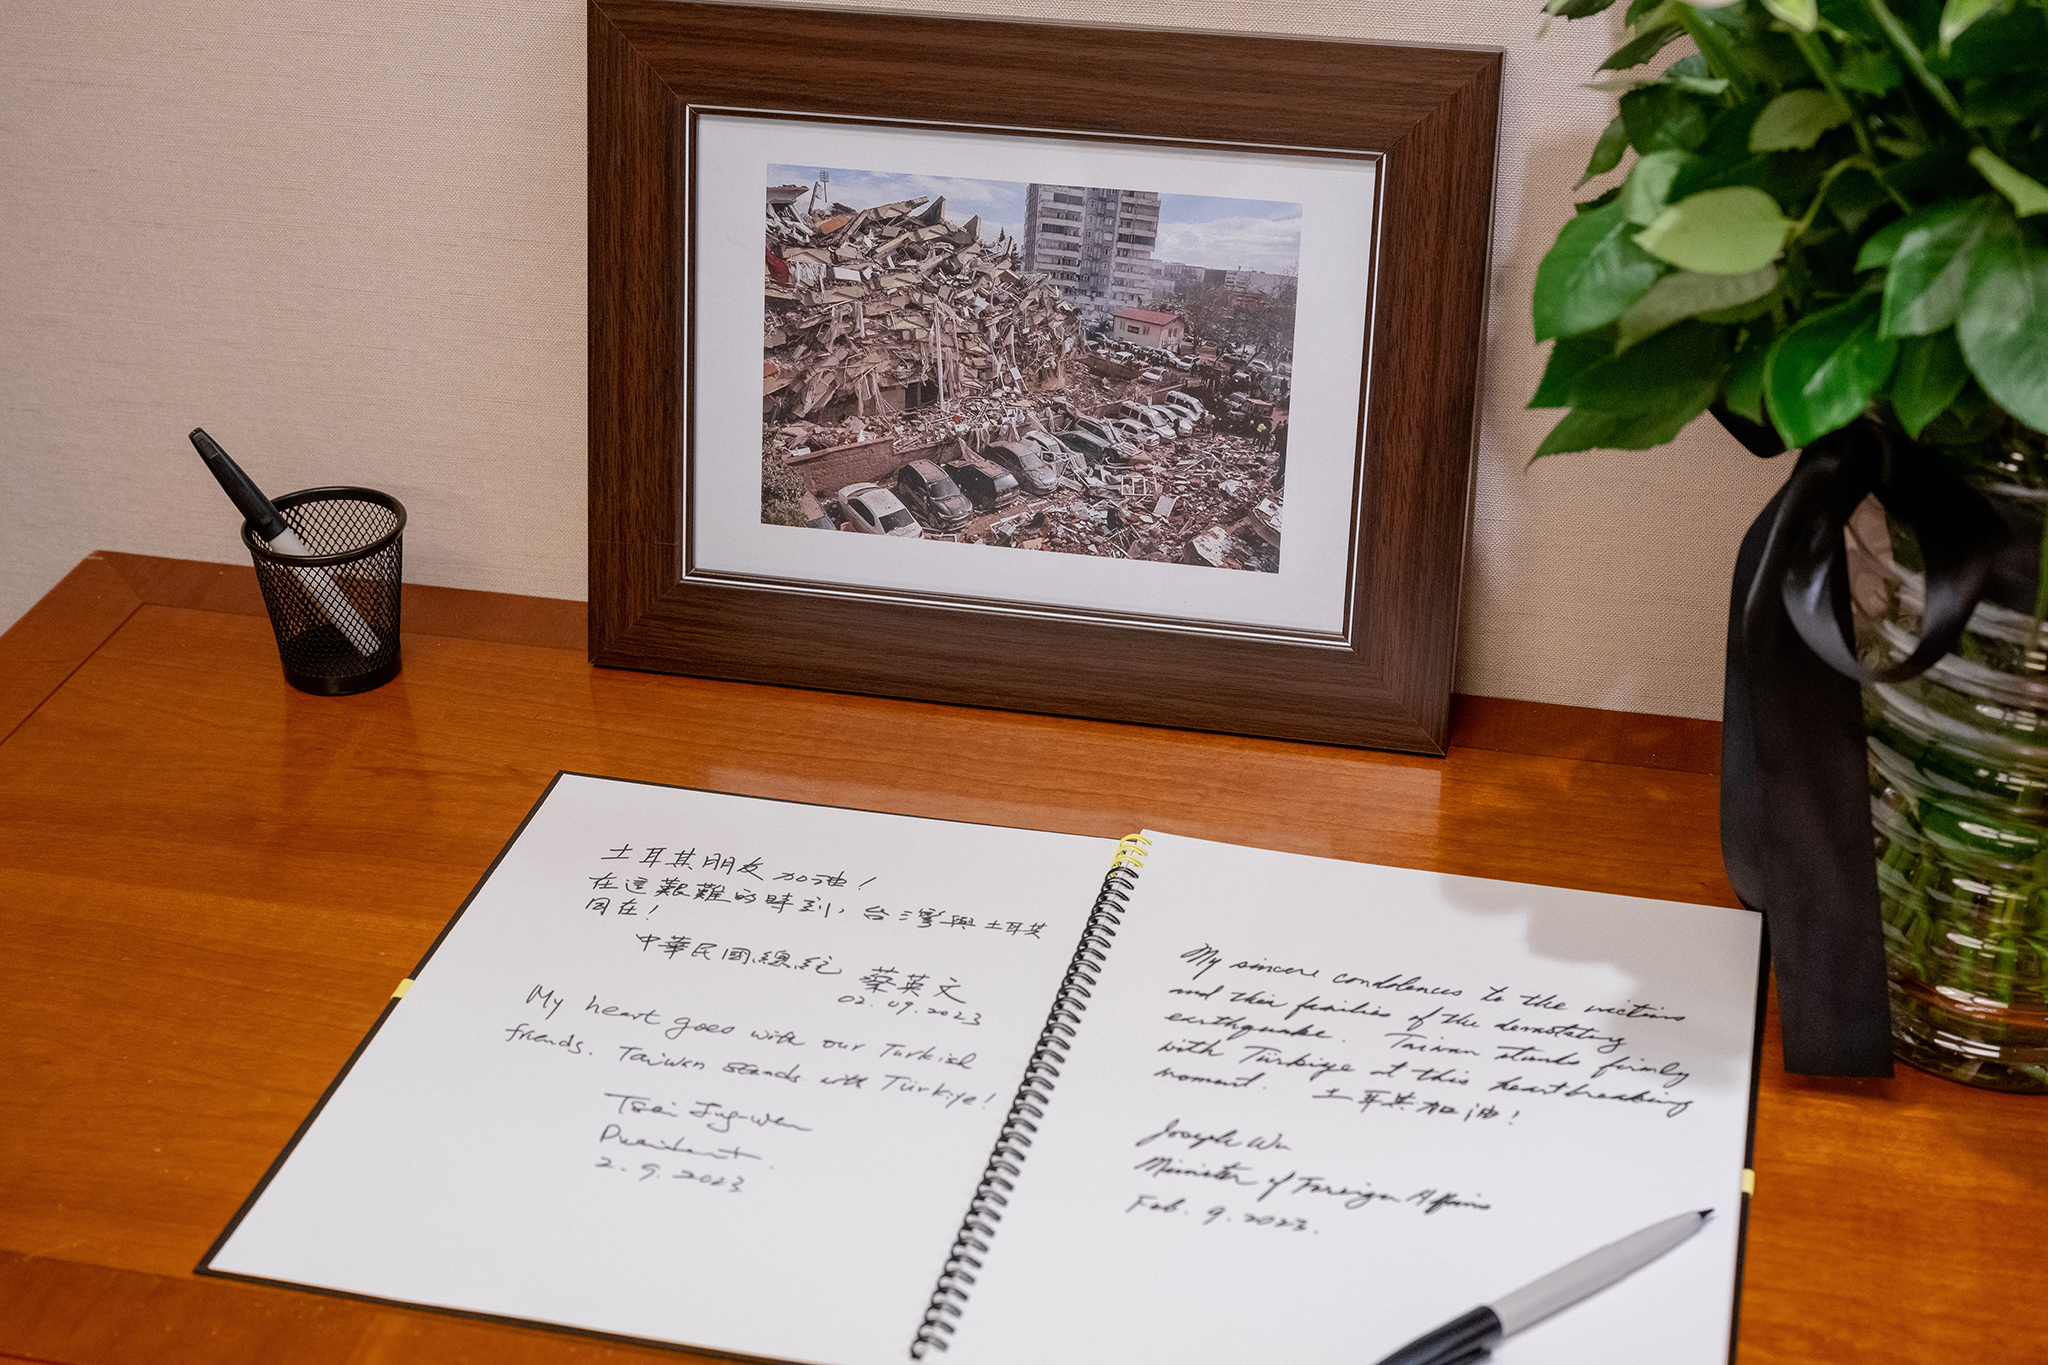 土耳其朋友加油！
在這艱難的時刻，台灣與土耳其
同在！
中華民國總統 蔡英文
02.09.2023
My heart goes with our Turkish
friends. Taiwan stands with Türkiye!
Tsai Ing-wen
President
2.9.2023
My sincere condolences to the victims
and their families of the devastating
earthquake. Taiwan stands firmly
with Türkiye at this heartbreaking
moment. 土耳其加油！
Joseph Wu
Minister of Foreign Affairs
Feb. 9. 2023.